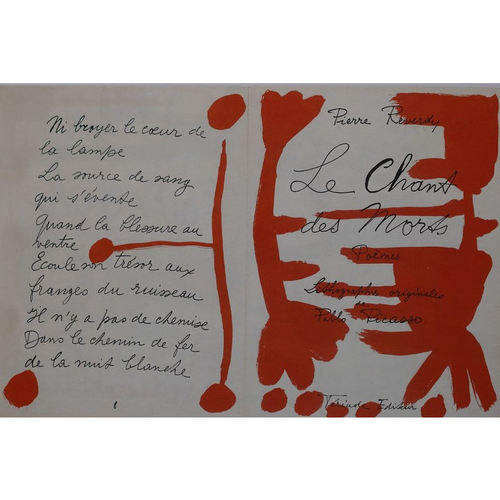 Ni broyer le cœur de
la lampe
La source de sang
qui s'évente
Quand la blessure au
ventre
Ecoule son trésor aux
franges du ruisseau
Il n'y a pas de chemise
Dans le chemin de fer
de la nuit blanche
Pierre Reverdy
Le Chant
des Morts
Poèmes
Lithographies originales
Pablo Picasso
Tériade Editeur